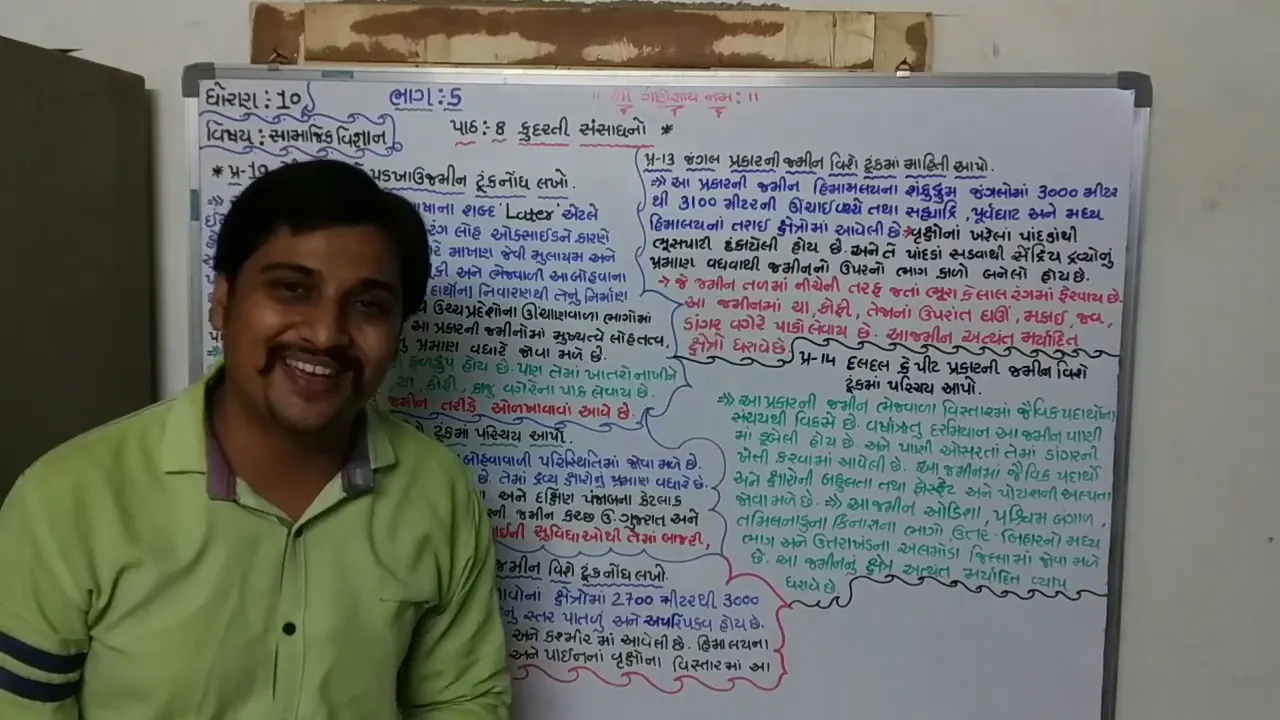 ॥ શ્રી ગણેશાય નમઃ ॥
ધોરણ : 10
ભાગ : 5
વિષય : સામાજિક વિજ્ઞાન
પાઠ :- 8 કુદરતી સંસાધનો *
* પ્ર-10 પડખાઉ જમીન ટૂંકનોંધ લખો.
ભાષાના શબ્દ 'Later' એટલે
રંગ લોહ ઓક્સાઈડને કારણે
માખણ જેવી મુલાયમ અને
અને ભેજવાળી આબોહવાના
નિવારણથી તેનું નિર્માણ
ઉચ્ચપ્રદેશોના ઊંચાણવાળા ભાગોમાં
આ પ્રકારની જમીનોમાં મુખ્યત્વે લોહતત્વ,
પ્રમાણ વધારે જોવા મળે છે.
હોય છે. પણ તેમાં ખાતરો નાખીને
ચા, કોફી, કાજુ વગેરેના પાક લેવાય છે.
જમીન તરીકે ઓળખાવાવાં આવે છે.
ટૂંકમાં પરિચય આપો.
આબોહવાવાળી પરિસ્થિતિમાં જોવા મળે છે.
છે. તેમાં દ્રવ્ય ક્ષારોનું પ્રમાણ વધારે છે.
અને દક્ષિણ પંજાબના કેટલાક
જમીન કચ્છ ઉ.ગુજરાત અને
સુવિધાઓથી તેમાં બાજરી,
જમીન વિશે ટૂંકનોંધ લખો.
ક્ષેત્રોમાં 2700 મીટરથી 3000
સ્તર પાતળું અને અપરિપકવ હોય છે.
અને કશ્મીરમાં આવેલી છે. હિમાલયના
અને પાઈનનાં વૃક્ષોના વિસ્તારમાં આ
પ્ર-13 જંગલ પ્રકારની જમીન વિશે ટૂંકમાં માહિતી આપો.
⇒ આ પ્રકારની જમીન હિમાલયના શંકુદ્રુમ જંગલોમાં 3000 મીટર
થી 3100 મીટરની ઊંચાઈ વચ્ચે તથા સહ્યાદ્રિ, પૂર્વઘાટ અને મધ્ય
હિમાલયનાં તરાઈ ક્ષેત્રોમાં આવેલી છે → વૃક્ષોનાં ખરેલાં પાંદડાંથી
ભૂસપાટી ઢંકાયેલી હોય છે. અને તે પાંદડાં સડવાથી સેંદ્રિય દ્રવ્યોનું
પ્રમાણ વધવાથી જમીનનો ઉપરનો ભાગ કાળો બનેલો હોય છે.
→ જે જમીન તળમાં નીચેની તરફ જતાં ભૂરા કે લાલ રંગમાં ફેરવાય છે.
આ જમીનમાં ચા, કોફી, તેજાનાં ઉપરાંત ઘઊં, મકાઈ, જવ,
ડાંગર વગેરે પાકો લેવાય છે. આજમીન અત્યંત મર્યાદિત
ક્ષેત્રો ધરાવે છે.
પ્ર-14 દલદલ કે પીટ પ્રકારની જમીન વિશે
ટૂંકમાં પરિચય આપો.
⇒ આ પ્રકારની જમીન ભેજવાળા વિસ્તારમાં જૈવિક પદાર્થોના
સંચયથી વિકસે છે. વર્ષાઋતુ દરમિયાન આ જમીન પાણી
માં ડૂબેલી હોય છે. અને પાણી ઓસરતાં તેમાં ડાંગરની
ખેતી કરવામાં આવેલી છે. આ જમીનમાં જૈવિક પદાર્થો
અને ક્ષારોની બહુલતા તથા ફોસ્ફેટ અને પોટાશની અલ્પતા
જોવા મળે છે. ⇒ આ જમીન ઓડિશા, પશ્ચિમ બંગાળ,
તમિલનાડુના કિનારાના ભાગો ઉત્તર-બિહારનો મધ્ય
ભાગ અને ઉત્તરાખંડના અલમોડા જિલ્લામાં જોવા મળે
છે. આ જમીનનું ક્ષેત્ર અત્યંત મર્યાદિત વ્યાપ
ધરાવે છે.